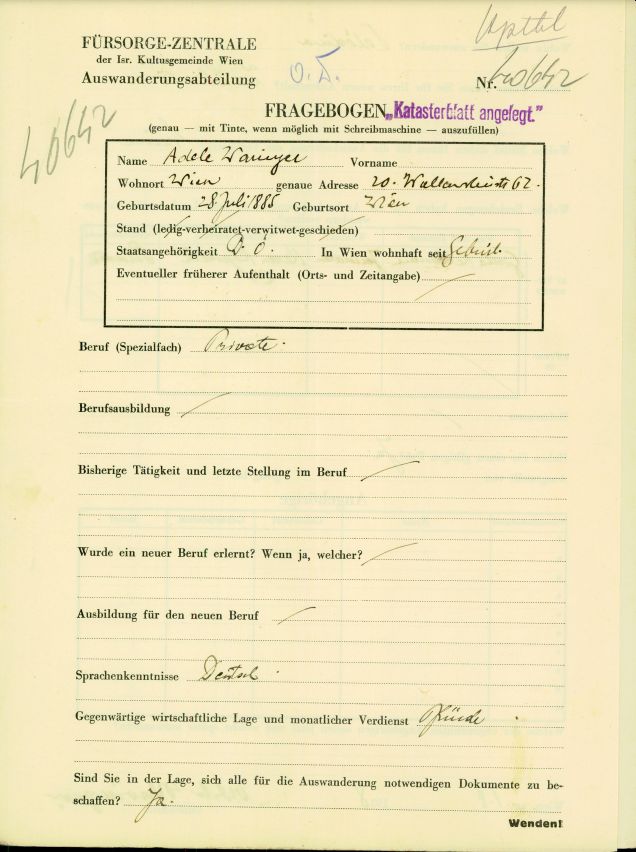 FÜRSORGE-ZENTRALE
der Isr. Kultusgemeinde Wien
Auswanderungsabteilung
Nr. 40642
40642
FRAGEBOGEN „Katasterblatt angelegt."
(genau — mit Tinte, wenn möglich mit Schreibmaschine — auszufüllen)
Name Adele Vorname
Wohnort Wien genaue Adresse 20. 62.
Geburtsdatum 28 Juli 1885 Geburtsort Wien
Stand (ledig-verheiratet-verwitwet-geschieden)
Staatsangehörigkeit D. Ö. In Wien wohnhaft seit Geburt
Eventueller früherer Aufenthalt (Orts- und Zeitangabe)
Beruf (Spezialfach) Private.
Berufsausbildung
Bisherige Tätigkeit und letzte Stellung im Beruf
Wurde ein neuer Beruf erlernt? Wenn ja, welcher?
Ausbildung für den neuen Beruf
Sprachenkenntnisse Deutsch
Gegenwärtige wirtschaftliche Lage und monatlicher Verdienst
Sind Sie in der Lage, sich alle für die Auswanderung notwendigen Dokumente zu be-
schaffen? Ja.
Wenden!